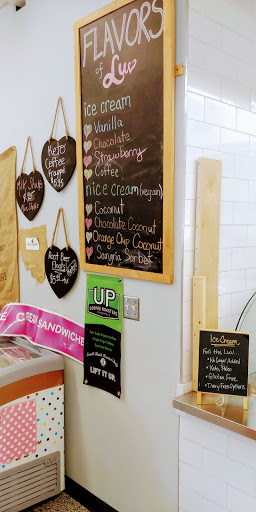 FLAVORS
of Luv
ice cream
Vanilla
Chocolate
Strawberry
Coffee
nice cream (vegan)
Coconut
Chocolate Coconut
Orange Chip Coconut
Sangria Sorbet
Keto
Coffee
Frappe
Milk Shake
Root Beer
Floats
UP
COFFEE ROASTERS
LIFT IT UP.
CREAM SANDWICHE
Ice Cream
Feel the Luv...
No Sugar Added
Keto, Paleo
Gluten Free
Dairy Free Options